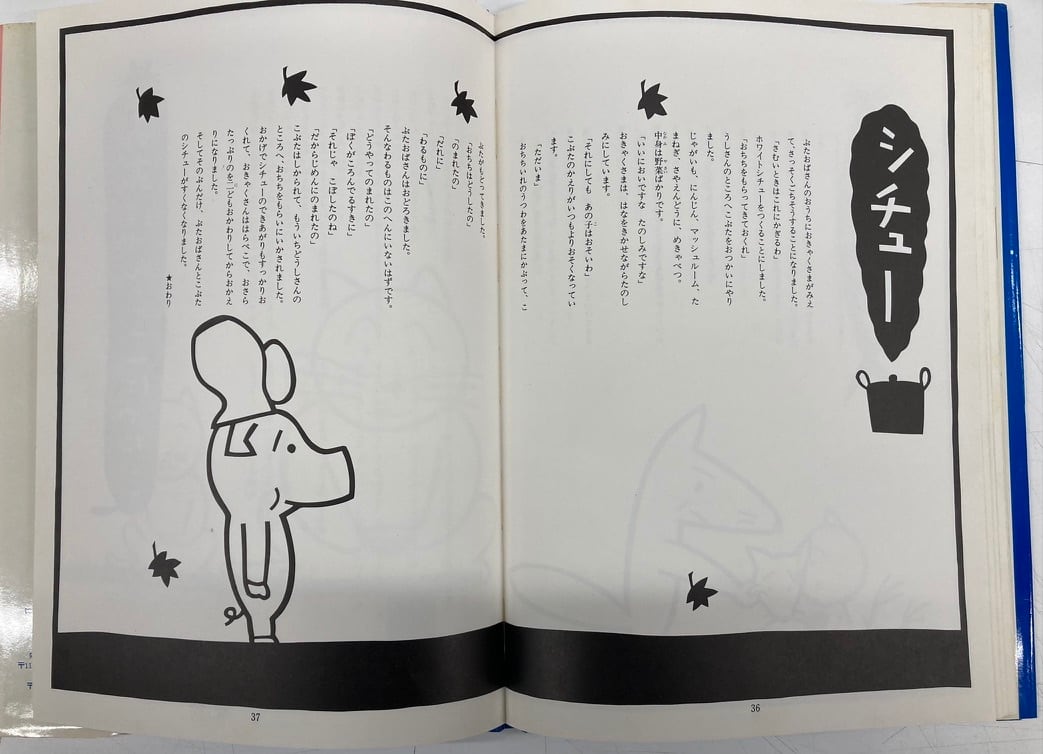 シチュー
ぶたおばさんのおうちにおきゃくさまがみえ
て、さっそくごちそうすることになりました。
「さむいときはこれにかぎるわ」
ホワイトシチューをつくることにしました。
「おちちをもらってきておくれ」
うしさんのところへこぶたをおつかいにやり
ました。
じゃがいも、にんじん、マッシュルーム、た
まねぎ、さやえんどうに、めきゃべつ。
中身は野菜ばかりです。
「いいにおいですな　たのしみですな」
おきゃくさまは、はなをきかせながらたのし
みにしています。
「それにしても　あの子はおそいわ」
こぶたのかえりがいつもよりおそくなってい
ます。
「ただいま」
おちちいれのうつわをあたまにかぶって、こ
ぶたがもどってきました。
「おちちはどうしたの」
「のまれたの」
「だれに」
「わるものに」
ぶたおばさんはおどろきました。
そんなわるものはこのへんにいないはずです。
「どうやってのまれたの」
「ぼくがころんでるすきに」
「それじゃ　こぼしたのね」
「だからじめんにのまれたの」
こぶたはしかられて、もういちどうしさんの
ところへ、おちちをもらいにいかされました。
おかげでシチューのできあがりもすっかりお
くれて、おきゃくさんははらぺこで、おさら
たっぷりのを三どもおかわりしてからおかえ
りになりました。
そしてそのぶんだけ、ぶたおばさんとこぶた
のシチューがすくなくなりました。
★おわり
36
37